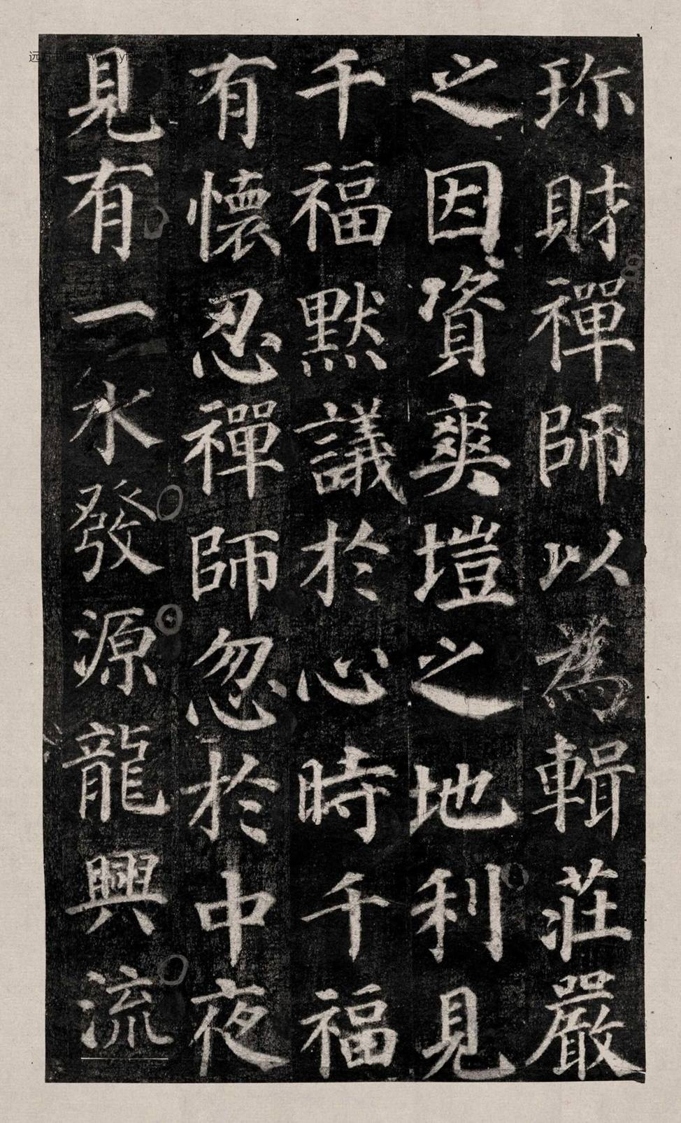 珎財禪師以為輯莊嚴
之因資爽塏之地利見
千福默議於心時千福
有懷忍禪師忽於中夜
見有一水發源龍興流